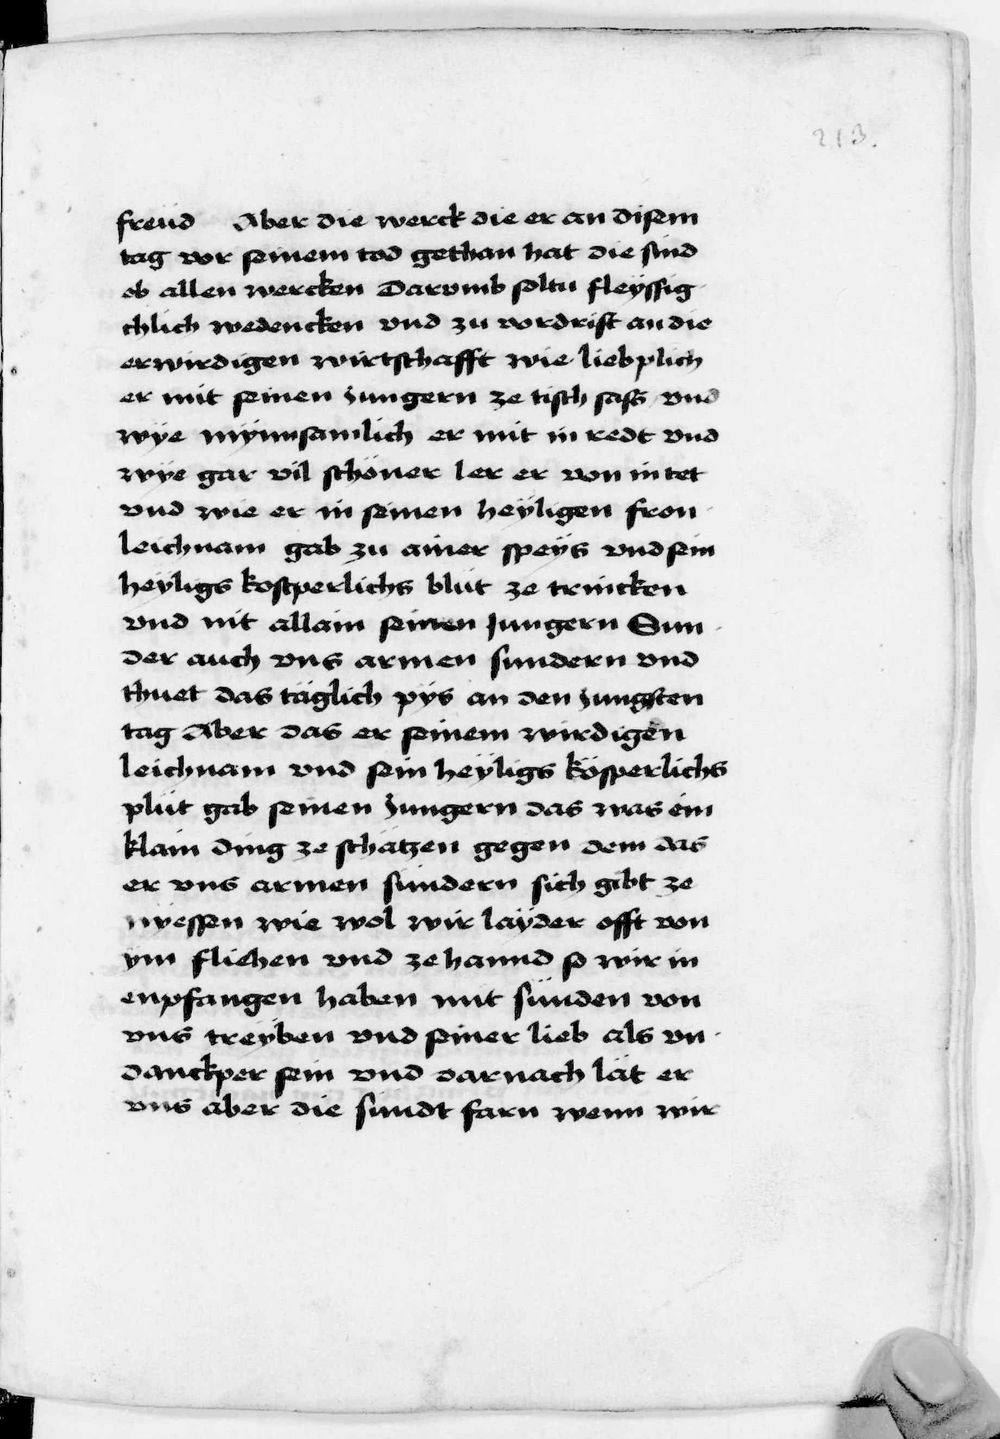 213.
freüd Aber die werck die er an disem
tag vor seinem tod gethan hat die sind
ob allen wercken Darvmb soltu fleÿssig
chlich wedencken vnd zu vordrist an die
erwirdigen wirtschafft wie lieb plich
er mit seinen Jungern ze tisch sass vnd
wÿe mÿnnsamlich er mit in redt vnd
wÿe gar vil schöner ler er von in tet
vnd wie er in seinen heÿligen fron
leichnam gab zu ainer speÿs vnd sein
heÿligs kostperlichs blüt ze trincken
vnd nit allain seinen Jungern Sun
der auch vns armen sundern vnd
thuet das täglich pÿs an den Jungsten
tag Aber das er seinem wirdigen
leichnam vnd sein heÿligs kösperlichs
plüt gab seinen Jungern das was ein
klain ding ze schätzen gegen dem das
er vns armen sündern sich gibt ze
nÿessen wie wol wir laÿder offt von
ÿm fliehen vnd ze hannd so wir in
enpfangen haben mit sünden von
vns treÿben vnd seiner lieb als vn
danckper sein vnd darnach lät er
vns aber die sündt farn wenn wir